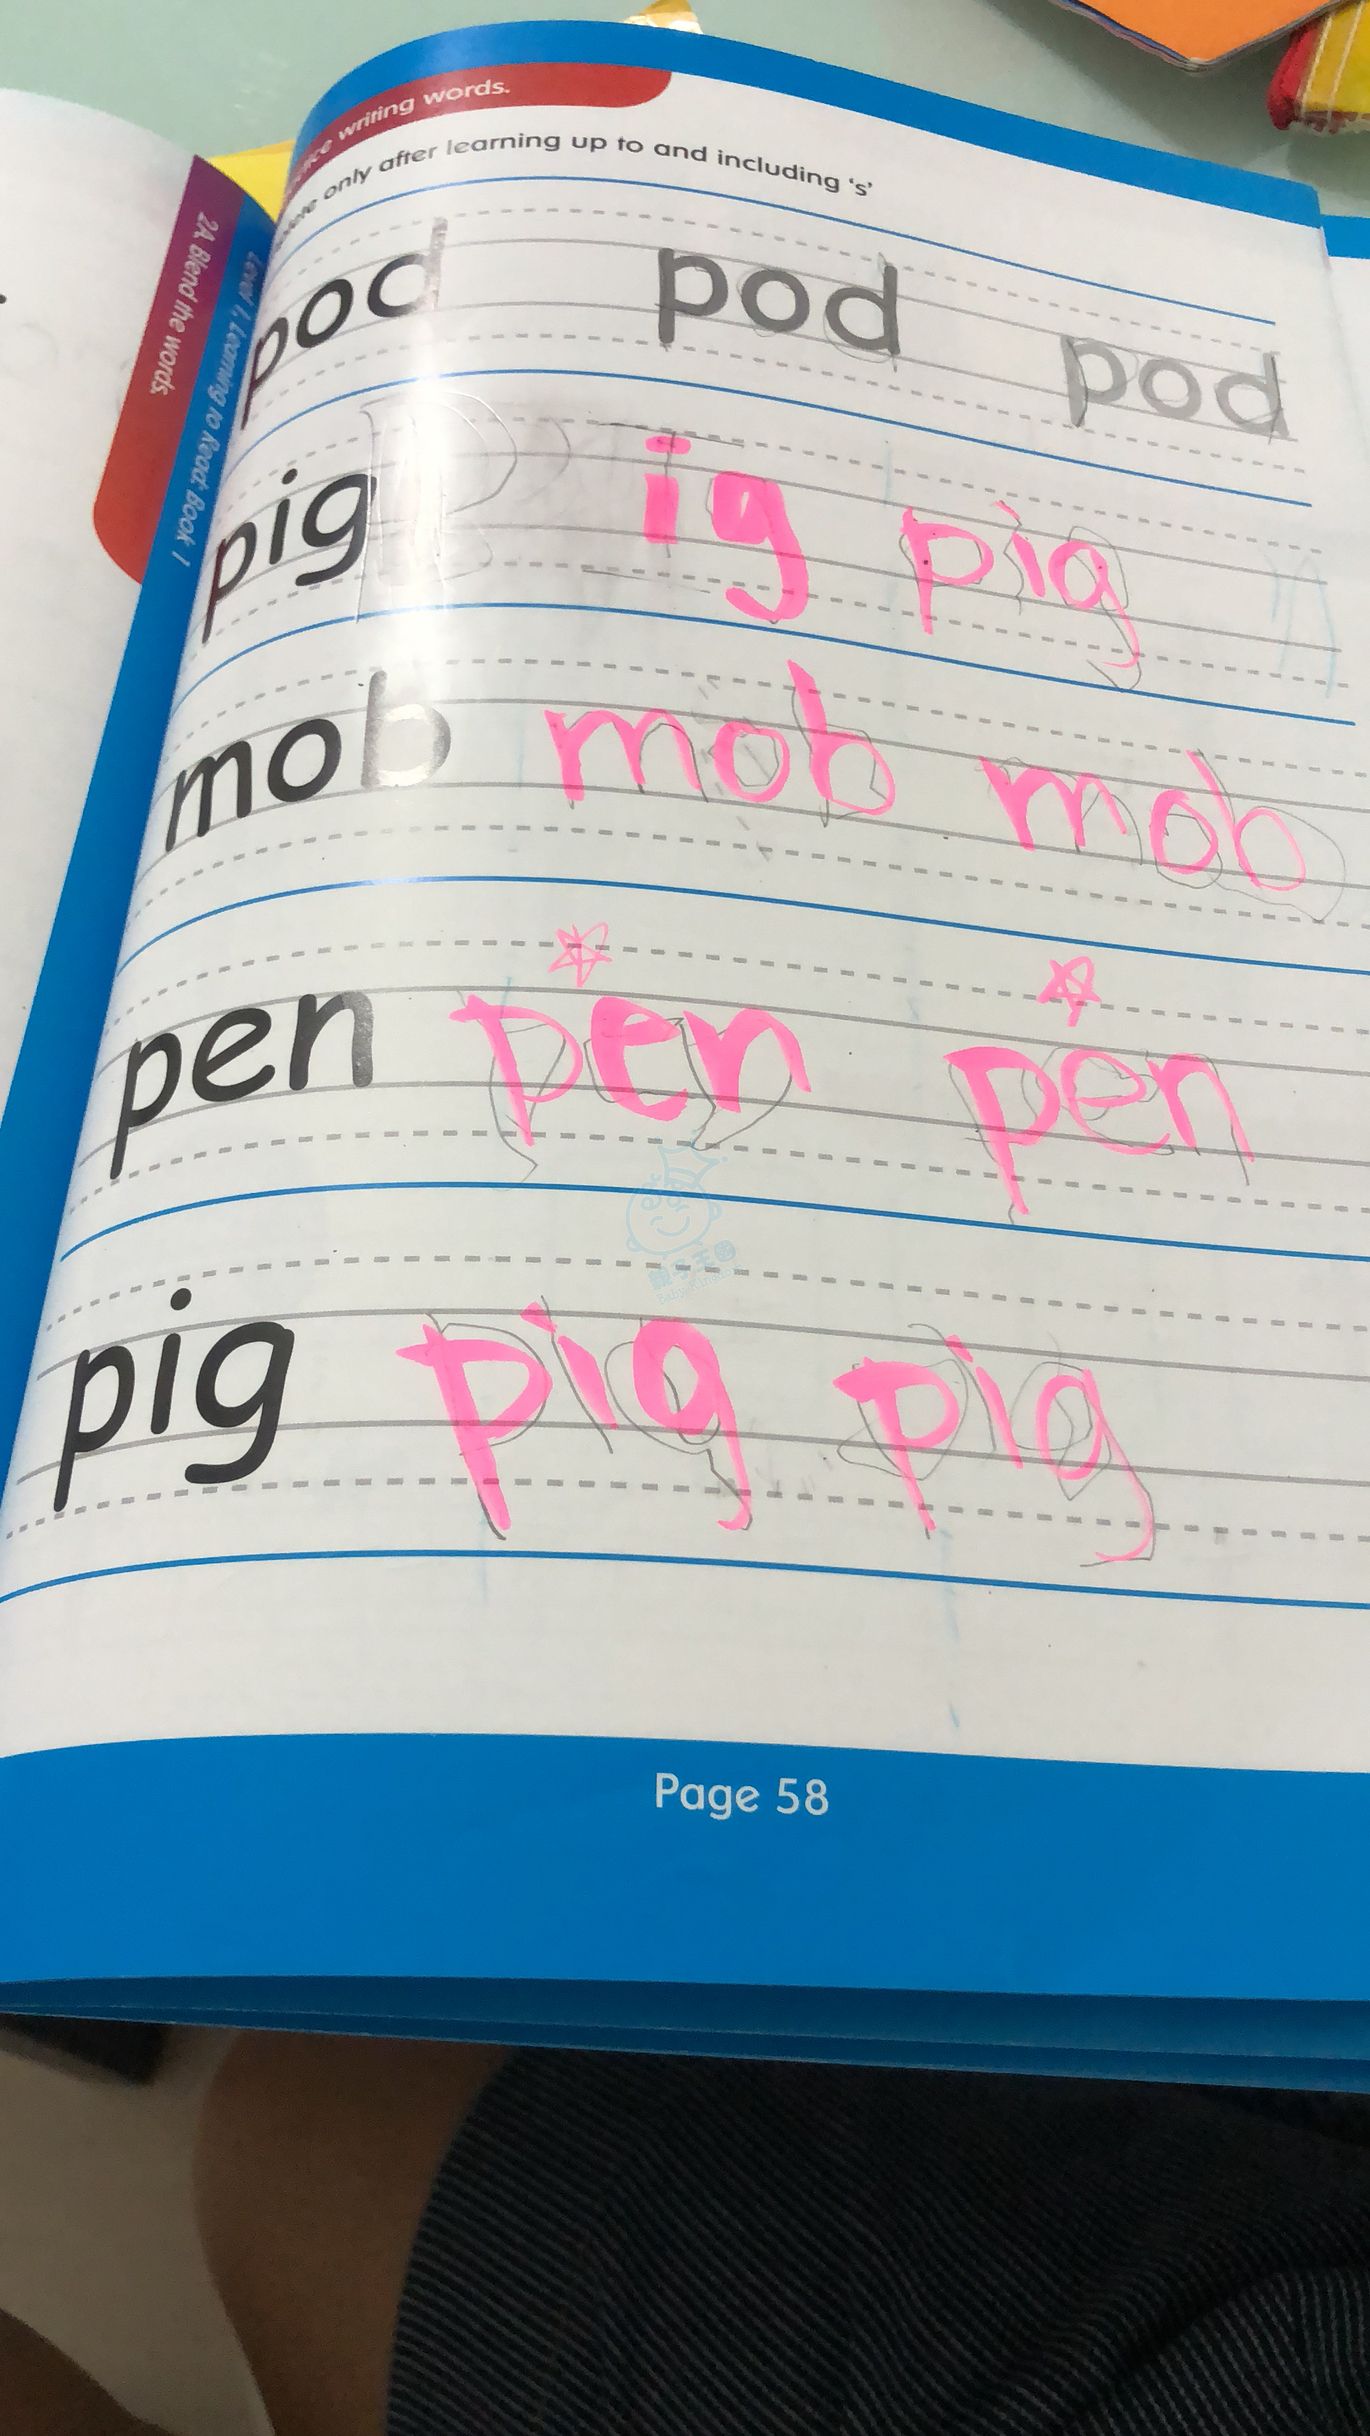 writing words.
only after learning up to and including 's'
2A Blend the words.
Level 1, Learning to Read: Book 1
pod pod pod
pig ig pig
mob mob mob
pen pen pen
親子王國
Baby Kingdom
pig pig pig
Page 58